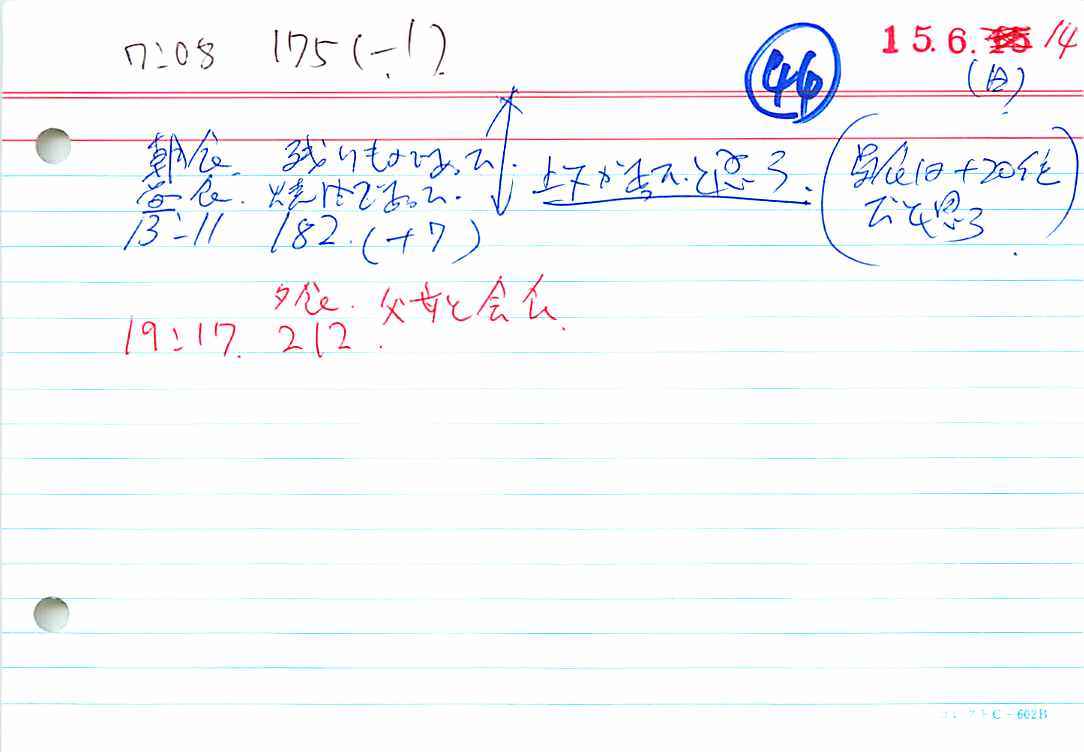 7:08 175(-1)
46
15.6.14
(日)
朝食. 残りものであった.
昼食. 焼肉であった.
13:11 182.(+7)
上下が出た.と思う.
昼食は+20位
だと思う
夕食. 父母と会食.
19:17. 212.
コレクト C-602B